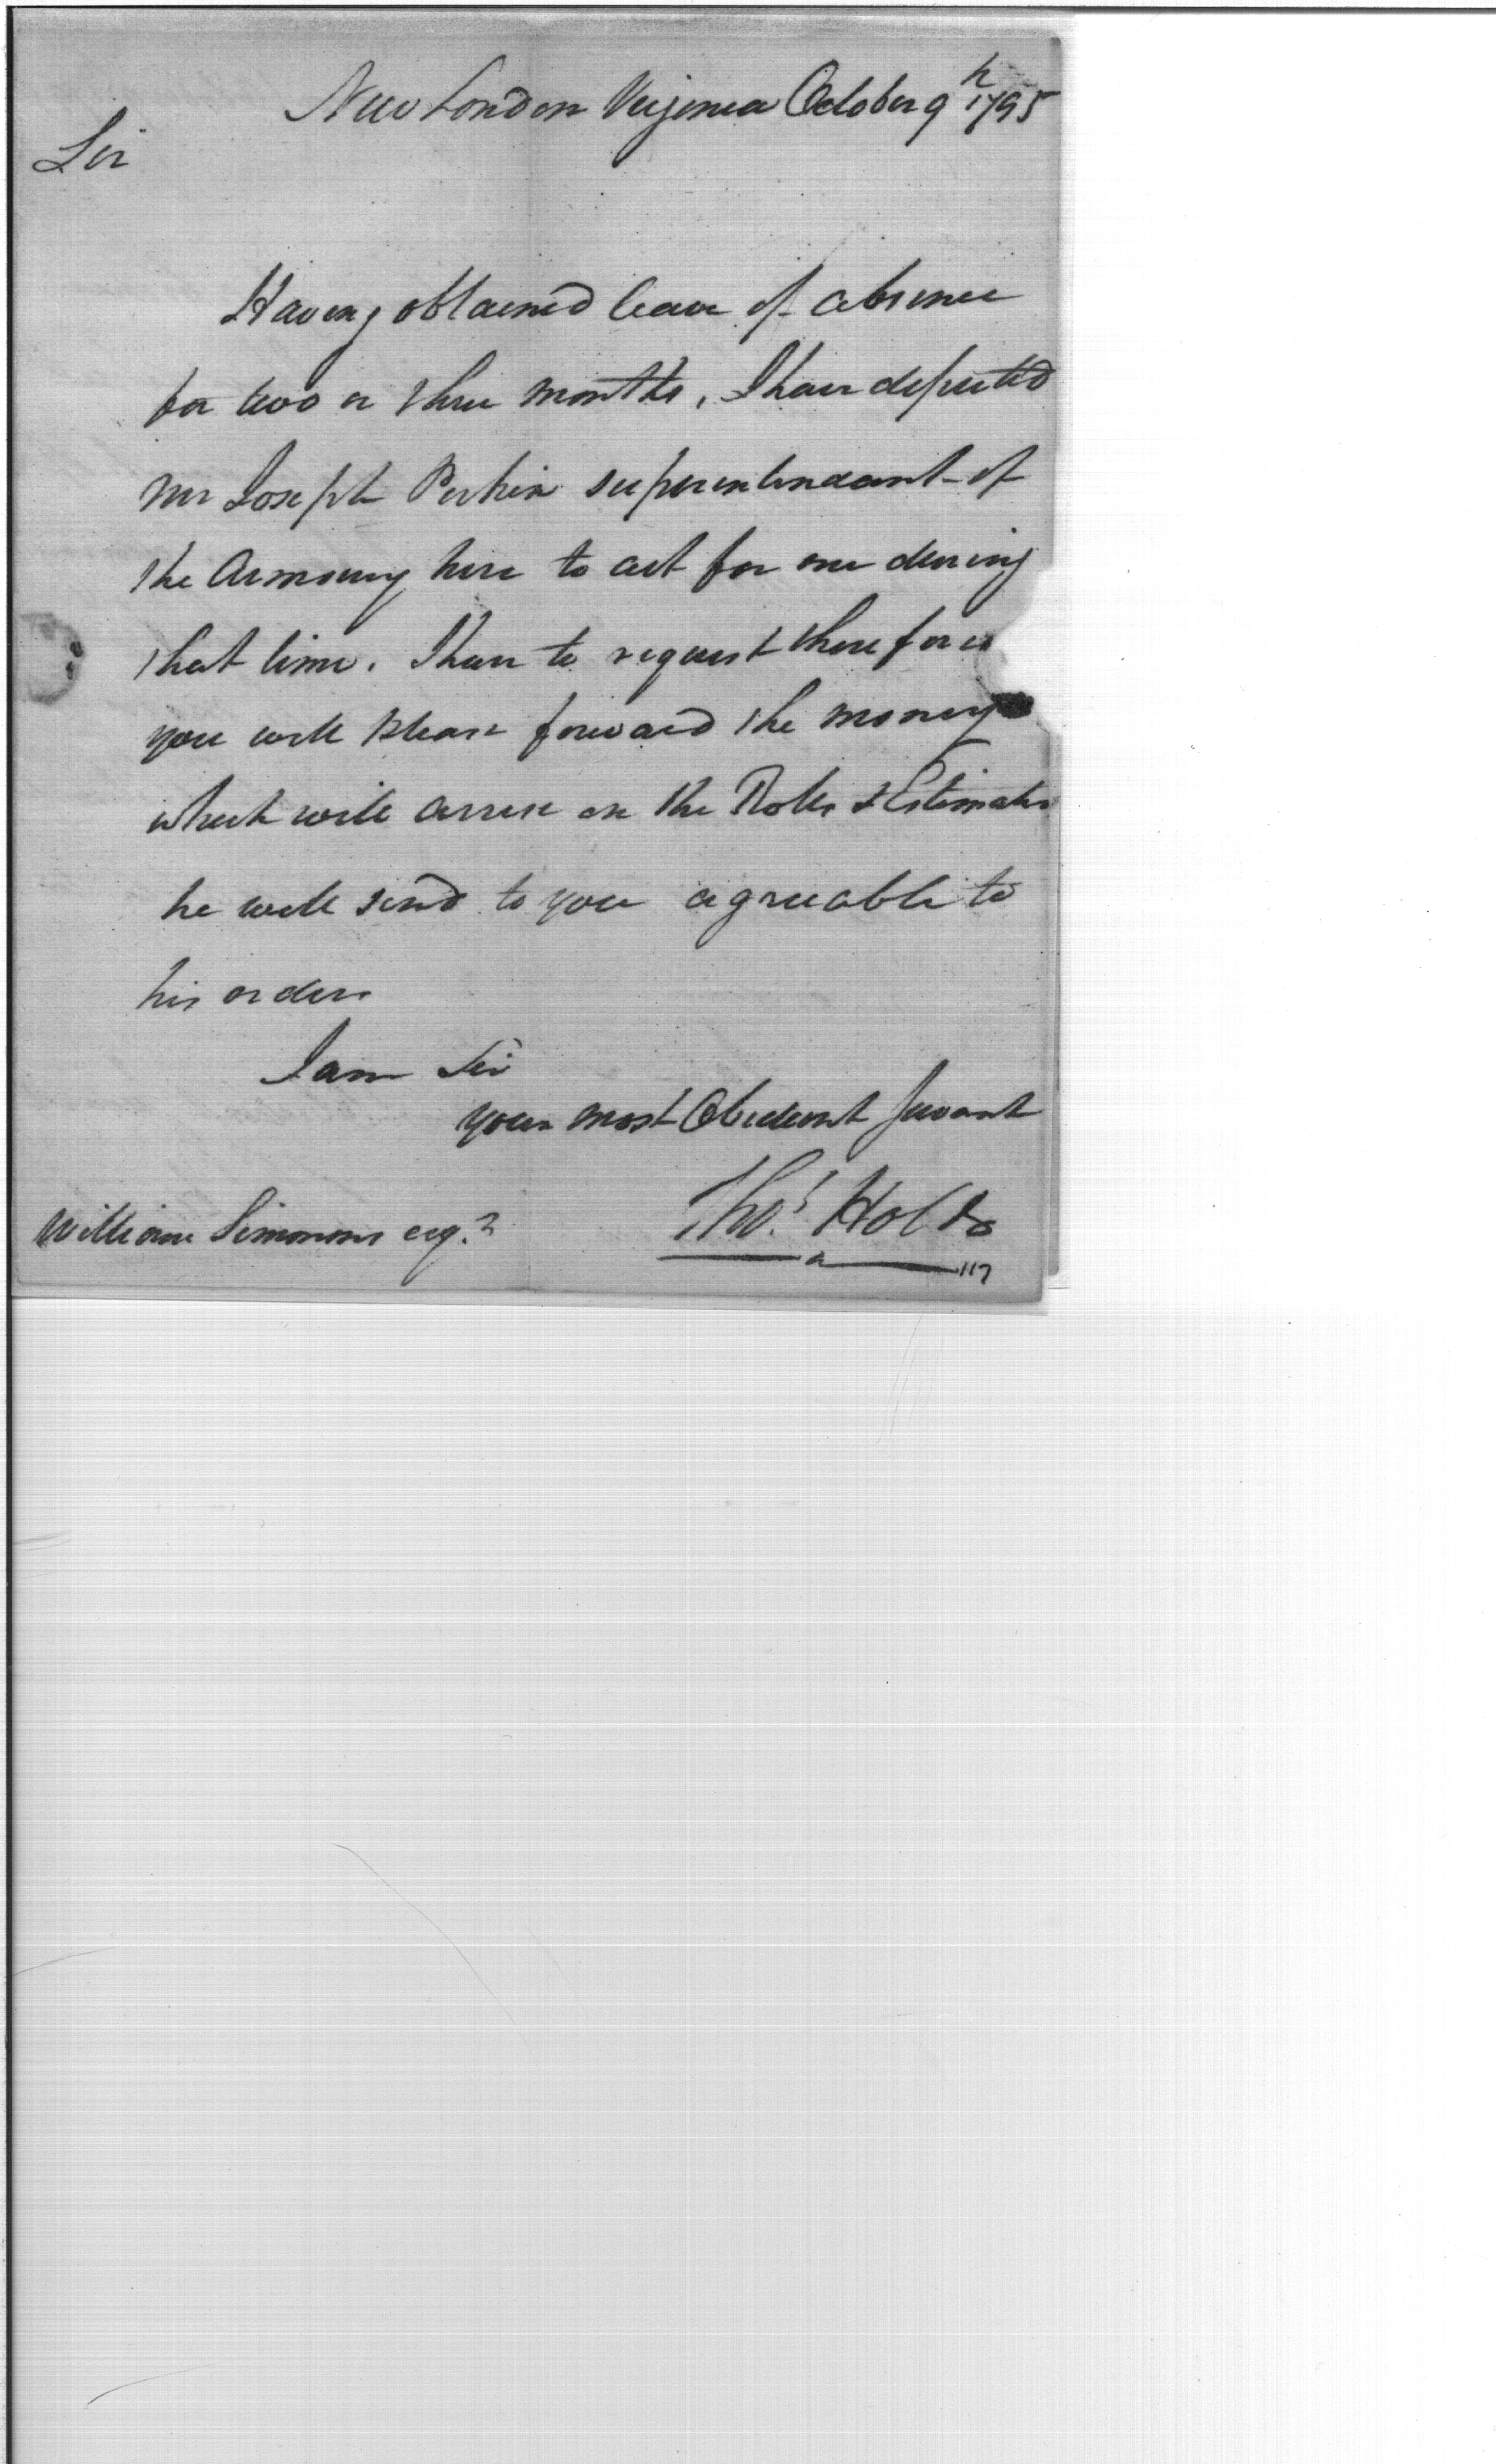 New London Virginia October 9th 1795
Sir
Having obtained leave of absence
for two or three months, I have deputed
Mr Joseph Perkin superintendant of
the Armoury here to act for me during
that time. I have to request therefore
you will please forward the money
which will arrise on the Rolls & Estimates
he will send to you agreeable to
his orders
I am Sir
your most Obedient Servant
Thos. Holt
William Simmons esq.
117